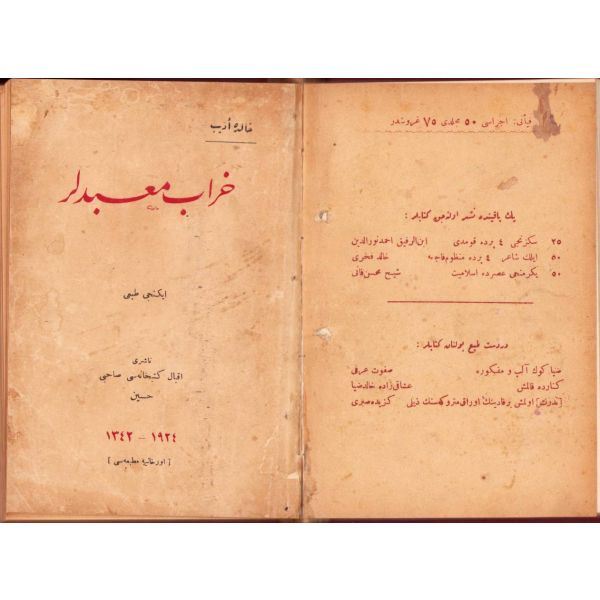 خالده أديب
خراب معبدلر
ايكنجى طبعى
ناشرى
اقبال كتبخانه‌سى صاحبى
حسين
١٩٢٤ - ١٣٤٢
[ اورخانيه مطبعه‌سى ]
فيأتى: اجراسى ٥٠ مجلدى ٧٥ غروشدر
يك ياقينده نشر اولنه‌جق كتابلر :
سكزنجى ٤ پرده قومدى ابن‌الرفيق احمد نورالدين ٢٥
ايلك شاعر ٤ پرده منظوم فاجعه خالد فخرى ٥٠
يكرمنجى عصرده اسلاميت شيخ محسن فانى ٥٠
دردست طبع بولنان كتابلر :
ضيا كوك آلپ و مفكوره صفوت عرفى
كنارده قالمش عشاقى زاده خالد ضيا
اولمش بر قادينك اوراق متروكه‌سنك ذيلى كزيده صبرى